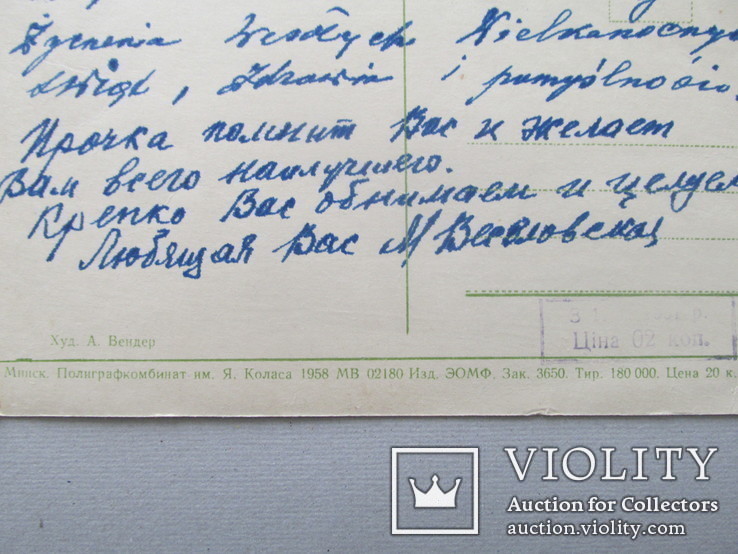 Życzenia Wesołych Wielkanocnych
Świąt, Zdrowia i pomyślności.
Ирочка помнит Вас и желает
Вам всего наилучшего.
Крепко Вас обнимаем и целуем
Любящая Вас М Веселовская
Худ. А. Вендер
Ціна 02 коп.
Минск. Полиграфкомбинат им. Я. Коласа 1958 МВ 02180 Изд. ЭОМФ. Зак. 3650. Тир. 180 000. Цена 20 к.
VIOLITY
Auction for Collectors
auction.violity.com